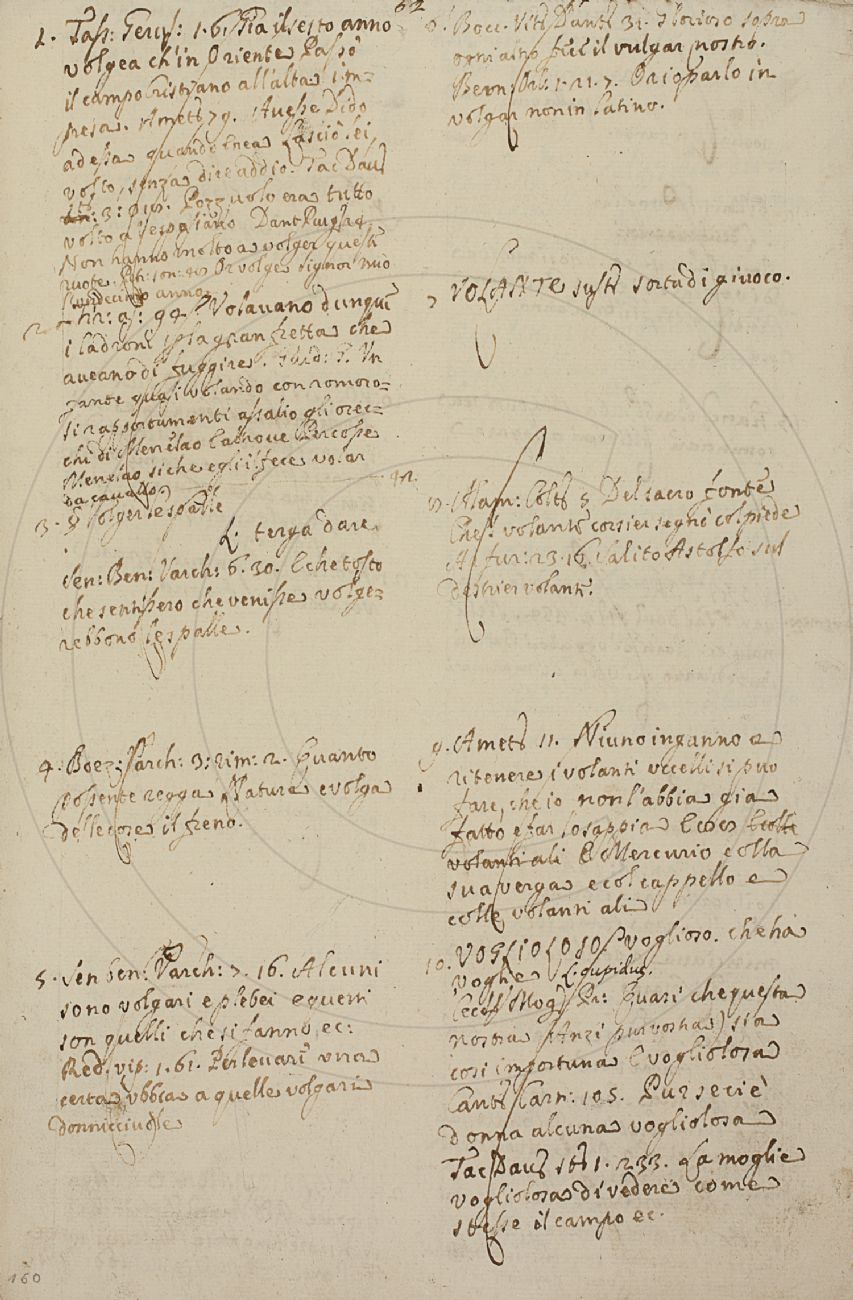 62
1. Tass: Gerus: 1.6. Gia il sesto anno
volgea ch'in Oriente Passò
il campo Cristiano all'alta im=
presa. Amet: 79. Avesse Dido
adessa quando Enea lasciò lei
volto, senza dire addio. Tac: Dav:
3: Pozzuolo era tutto
volto a Vespasiano Dant: Purg: 24
Non hanno molto a volger questi
ruote. Petr: son: Or volge signor mio
l'undecimo anno.
2. 94. Volavano dunque
i ladroni p la gran fretta che
aveano di fuggire. Ibid: Un
zante quasi volando con romoro=
si rapportamenti assalio gli orec=
chi di Menelao la nove Percosse
Menelao si che egli il fece volar
da cavallo
3. § Volger le spalle
L. terga dare
Sen: Ben: Varch: 6. 30. E che tosto
che sentissero che venisse volge=
rebbono le spalle.
4. Boez: Varch: 3: rim: 2. Quanto
possente regga Natura e volga
delle cose il freno.
5. Sen ben: Varch: 7. 16. Alcuni
sono volgari e plebei e questi
son quelli che si fanno, ec:
Red. vip: 1. 61. Per levari una
certa ubbia a quelle volgari
donnicciuole
6. Bocc: Vit: Dant: 31. Glorioso sopra
ogni altro fece il vulgar nostro.
Bern: Orl: 1. 21. 7. Or io parlo in
volgar non in latino.
7 VOLANTE sust: sorta di giuoco.
8. Alam: Colt: 5 Del sacro fonte
Che 'l volante corsier segnò col piede
Ar: fur: 23. 16. Salito Astolfo sul
destrier volante.
9. Amet: 11. Niuno inganno a
ritenere i volanti uccelli si può
fare, che io non l'abbia gia
fatto e far lo sappia Ecco colle
volanti ali E Mercurio colla
sua verga e col cappello e
colle volanti ali
10. VOGLIOLOSO Voglioso. che ha
voglie L. cupidus.
Cecch: Mogl: Pr: Quasi che questa
nostra (Anzi pur vostra) sia
così importuna E vogliolosa
Cant: Carn: 105. Pur se ci è
donna alcuna vogliolosa
Tac: Dav: st: 1. 233. La moglie
vogliolosa di vedere come
stesse il campo ec.
160